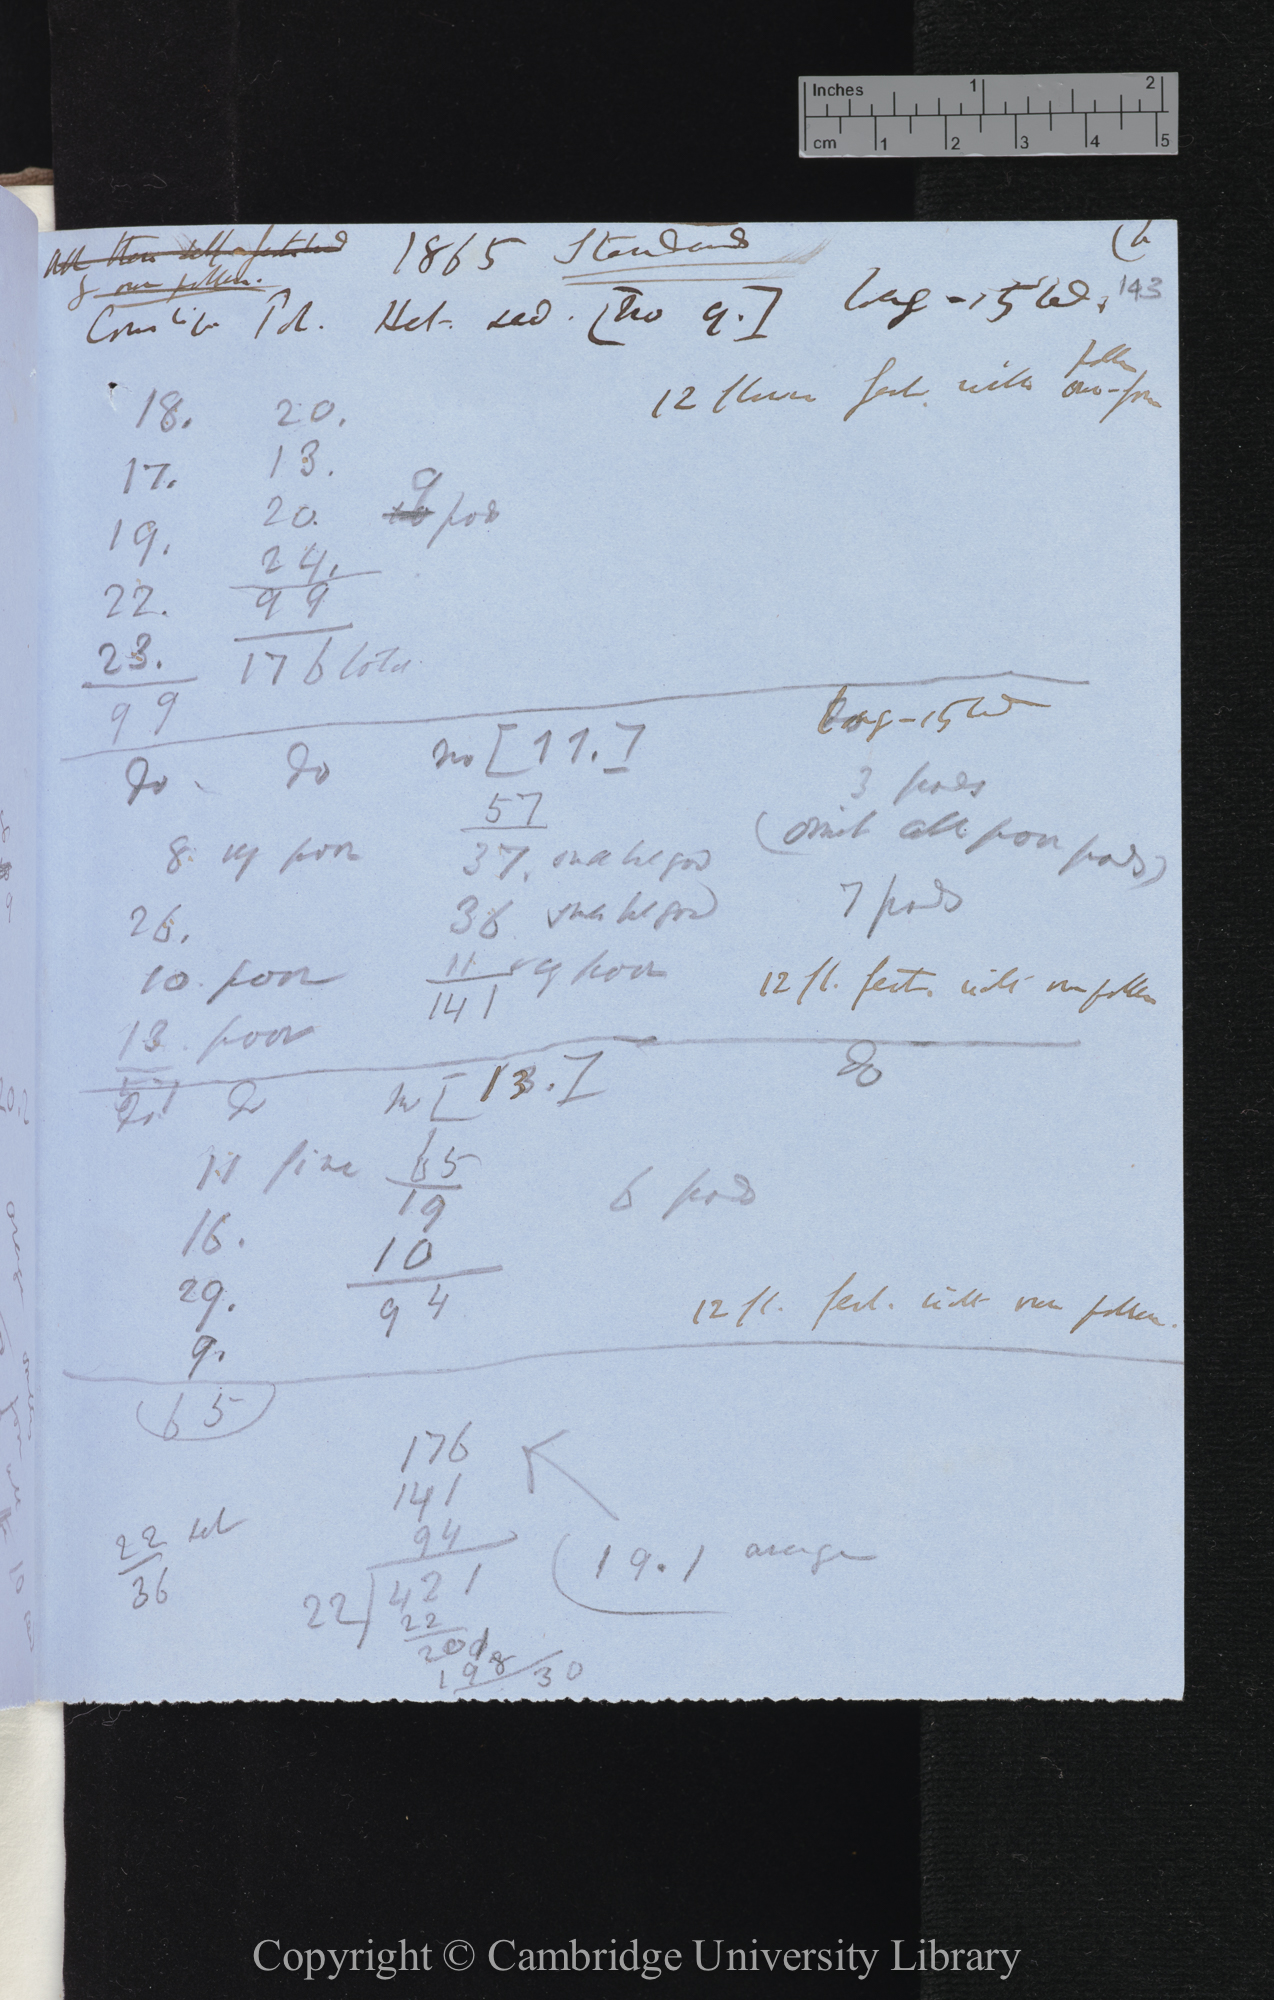 Inches 1 2
cm 1 2 3 4 5
1865 Standard (6
& own pollen.
143
Pol. Het. seed. [No 9.] Long-styled.
12 flowers fert. with own-form pollen
18. 20.
17. 13.
9
19. 20. pods
22. 24.
99
23. 176 total
99
Long-styled
Do. Do no [11.]
57 3 pods
8. vy poor 37. (omit all poor pods)
26. 36 7 pods
10. poor 11 vy poor 12 fl. fert. with own pollen
141
13. poor
57
Do. Do no [13.] Do
11 fine 65
19 6 pods
16. 10
29. 94 12 fl. fert. with own pollen.
9.
65
176
141
22 set 94
36 (19.1 average
22 421
22
201
198 30
Copyright © Cambridge University Library